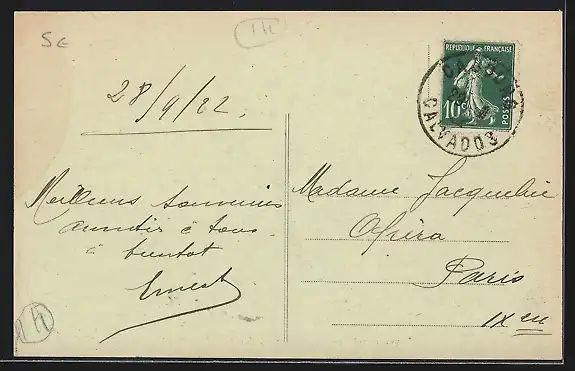 Se
14
28/9/22.
Meilleurs souvenirs
amitiés à tous
à bientot
Ernest
14
REPUBLIQUE FRANÇAISE
10c
POSTES
CABOURG
CALVADOS
Madame Jacquelin
Opéra
Paris
IXeu